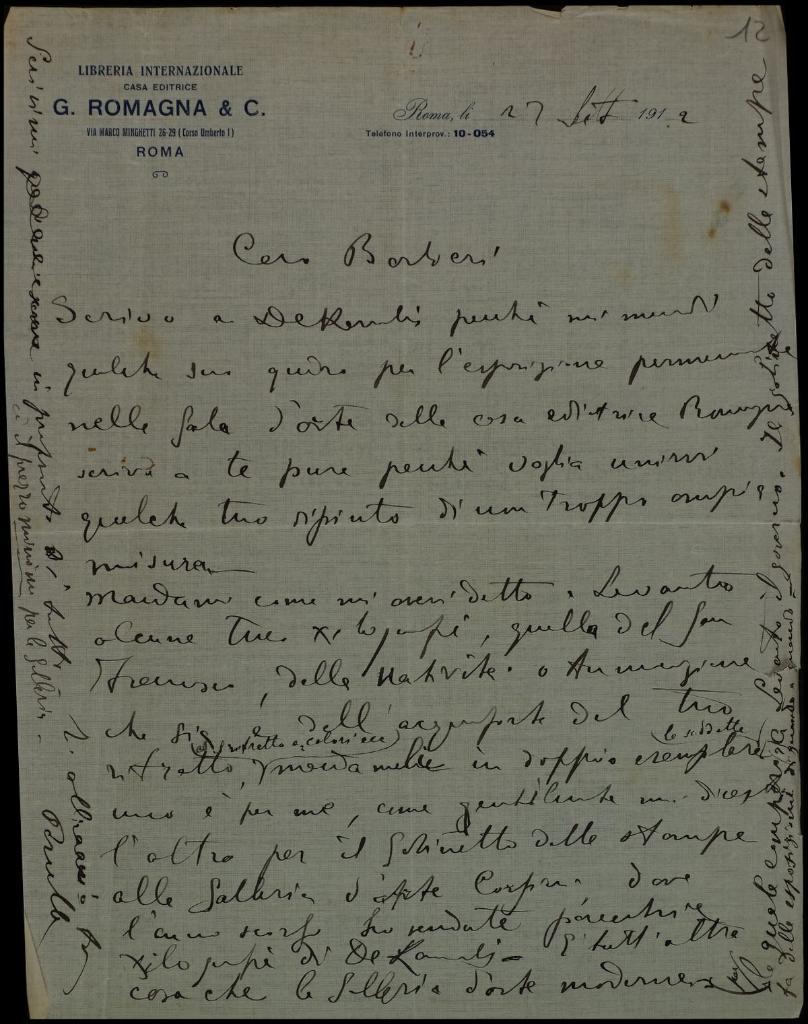 12
LIBRERIA INTERNAZIONALE
CASA EDITRICE
G. ROMAGNA & C.
VIA MARCO MINGHETTI 26-29 (Corso Umberto I)
ROMA
Roma, li 27 Sett 1912
Telefono Interprov.: 10-054
Caro Barbieri
Scrivo a DeKarolis perchè mi mandi
qualche suo quadro per l'esposizione permanente
nella Sala d'arte della casa editrice Romagna
scrivo a te pure perchè voglia unirvi
qualche tuo dipinto di non troppo ampia
misura
Mandami come mi avevi detto a Levanto
alcune tue xilografie, quella del San
Francesco, della Natività o Annunzione
che sia e dell'acquaforte del tuo
ritratto, mandamele in doppio esemplare
le suddette
uno è per me, come gentilmente mi dicesti
l'altro per il Gabinetto delle stampe
alla Galleria d'Arte Corsini dove
l'anno scorso ho vendute parecchie
xilografie di DeKarolis È tutt'altra
cosa che la Galleria d'arte moderna
la quale compera il governo. Il gabinetto delle stampe
fa delle esposizioni di quando a quando
Scrivimi in proposito di tutto
e il prezzo minimo per la Galleria.